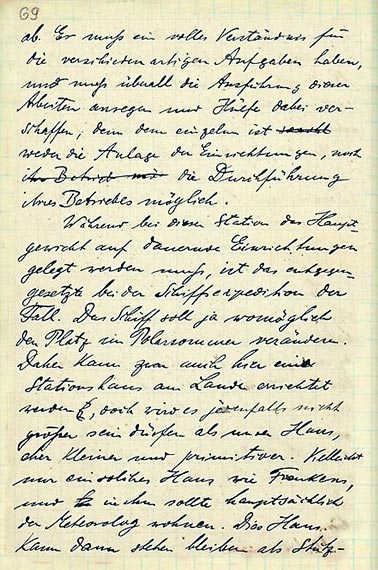 69
ab. Er muß ein volles Verständnis für
die verschiedenartigen Aufgaben haben,
und muß überall die Ausführung dieser
Arbeiten anregen und Hülfe dabei ver-
schaffen; denn dem einzelnen ist
weder die Anlage der Einrichtungen, noch
ihr Betrieb die Durchführung
ihres Betriebes möglich.
Während bei dieser Station das Haupt-
gewicht auf dauernde Einrichtungen
gelegt werden muß, ist das entgegen-
gesetzte bei der Schiffsexpedition der
Fall. Das Schiff soll ja womöglich
den Platz im Polarsommer verändern.
Daher kann zwar auch hier ein
Stationshaus am Lande errichtet
werden, doch wird es jedenfalls nicht
größer sein dürfen als unser Haus,
eher kleiner und primitiver. Vielleicht
nur ein solches Haus wie
und in ihm sollte hauptsächlich
der Meteorolog wohnen. Dies Haus
kann dann stehen bleiben als Stütz-